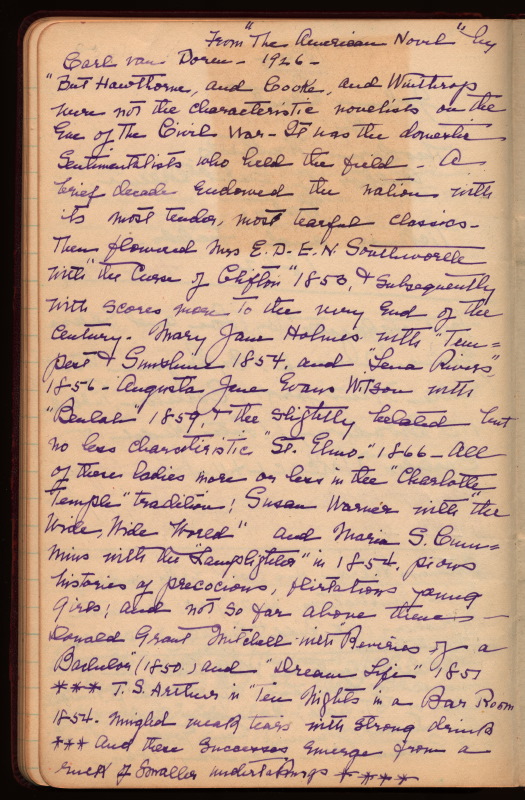 From "The American Novel" by
Carl van Doren - 1926 -
"But Hawthorne, and Cooke, and Winthrop
were not the characteristic novelists on the
Eve of the Civil War - It was the domestic
Sentimentalists who held the field A
brief decade endowed the nation with
its most tender, most tearful classics -
Then flowered Mrs E. D. E. N. Southworth
with "the Curse of Clifton" 1853, & subsequently
with scores more to the very End of the
Century. Mary Jane Holmes with "Tem=
pest & Sunshine 1854, and "Lena Rivers"
1856 - Augusta Jane Evans Wilson with
"Beulah" 1859, & the slightly belated but
no less characteristic "St. Elmo." 1866 - All
of these ladies more or less in the "Charlotte
Temple" tradition; Susan Warner with "the
Wide, Wide World" and Maria S. Cum=
mins with the "Lamplighter" in 1854. pious
histories of precocious, flirtatious young
girls; and not so far above them -
Donald Grant Mitchell with Reveries of a
Bachelor" (1850) and "Dream Life" 1851
*** T. S. Arthur in "Ten Nights in a Bar Room
1854. mingled meek tears with strong drink
*** And these Successes emerge from a
ruck of Smaller undertakings ****